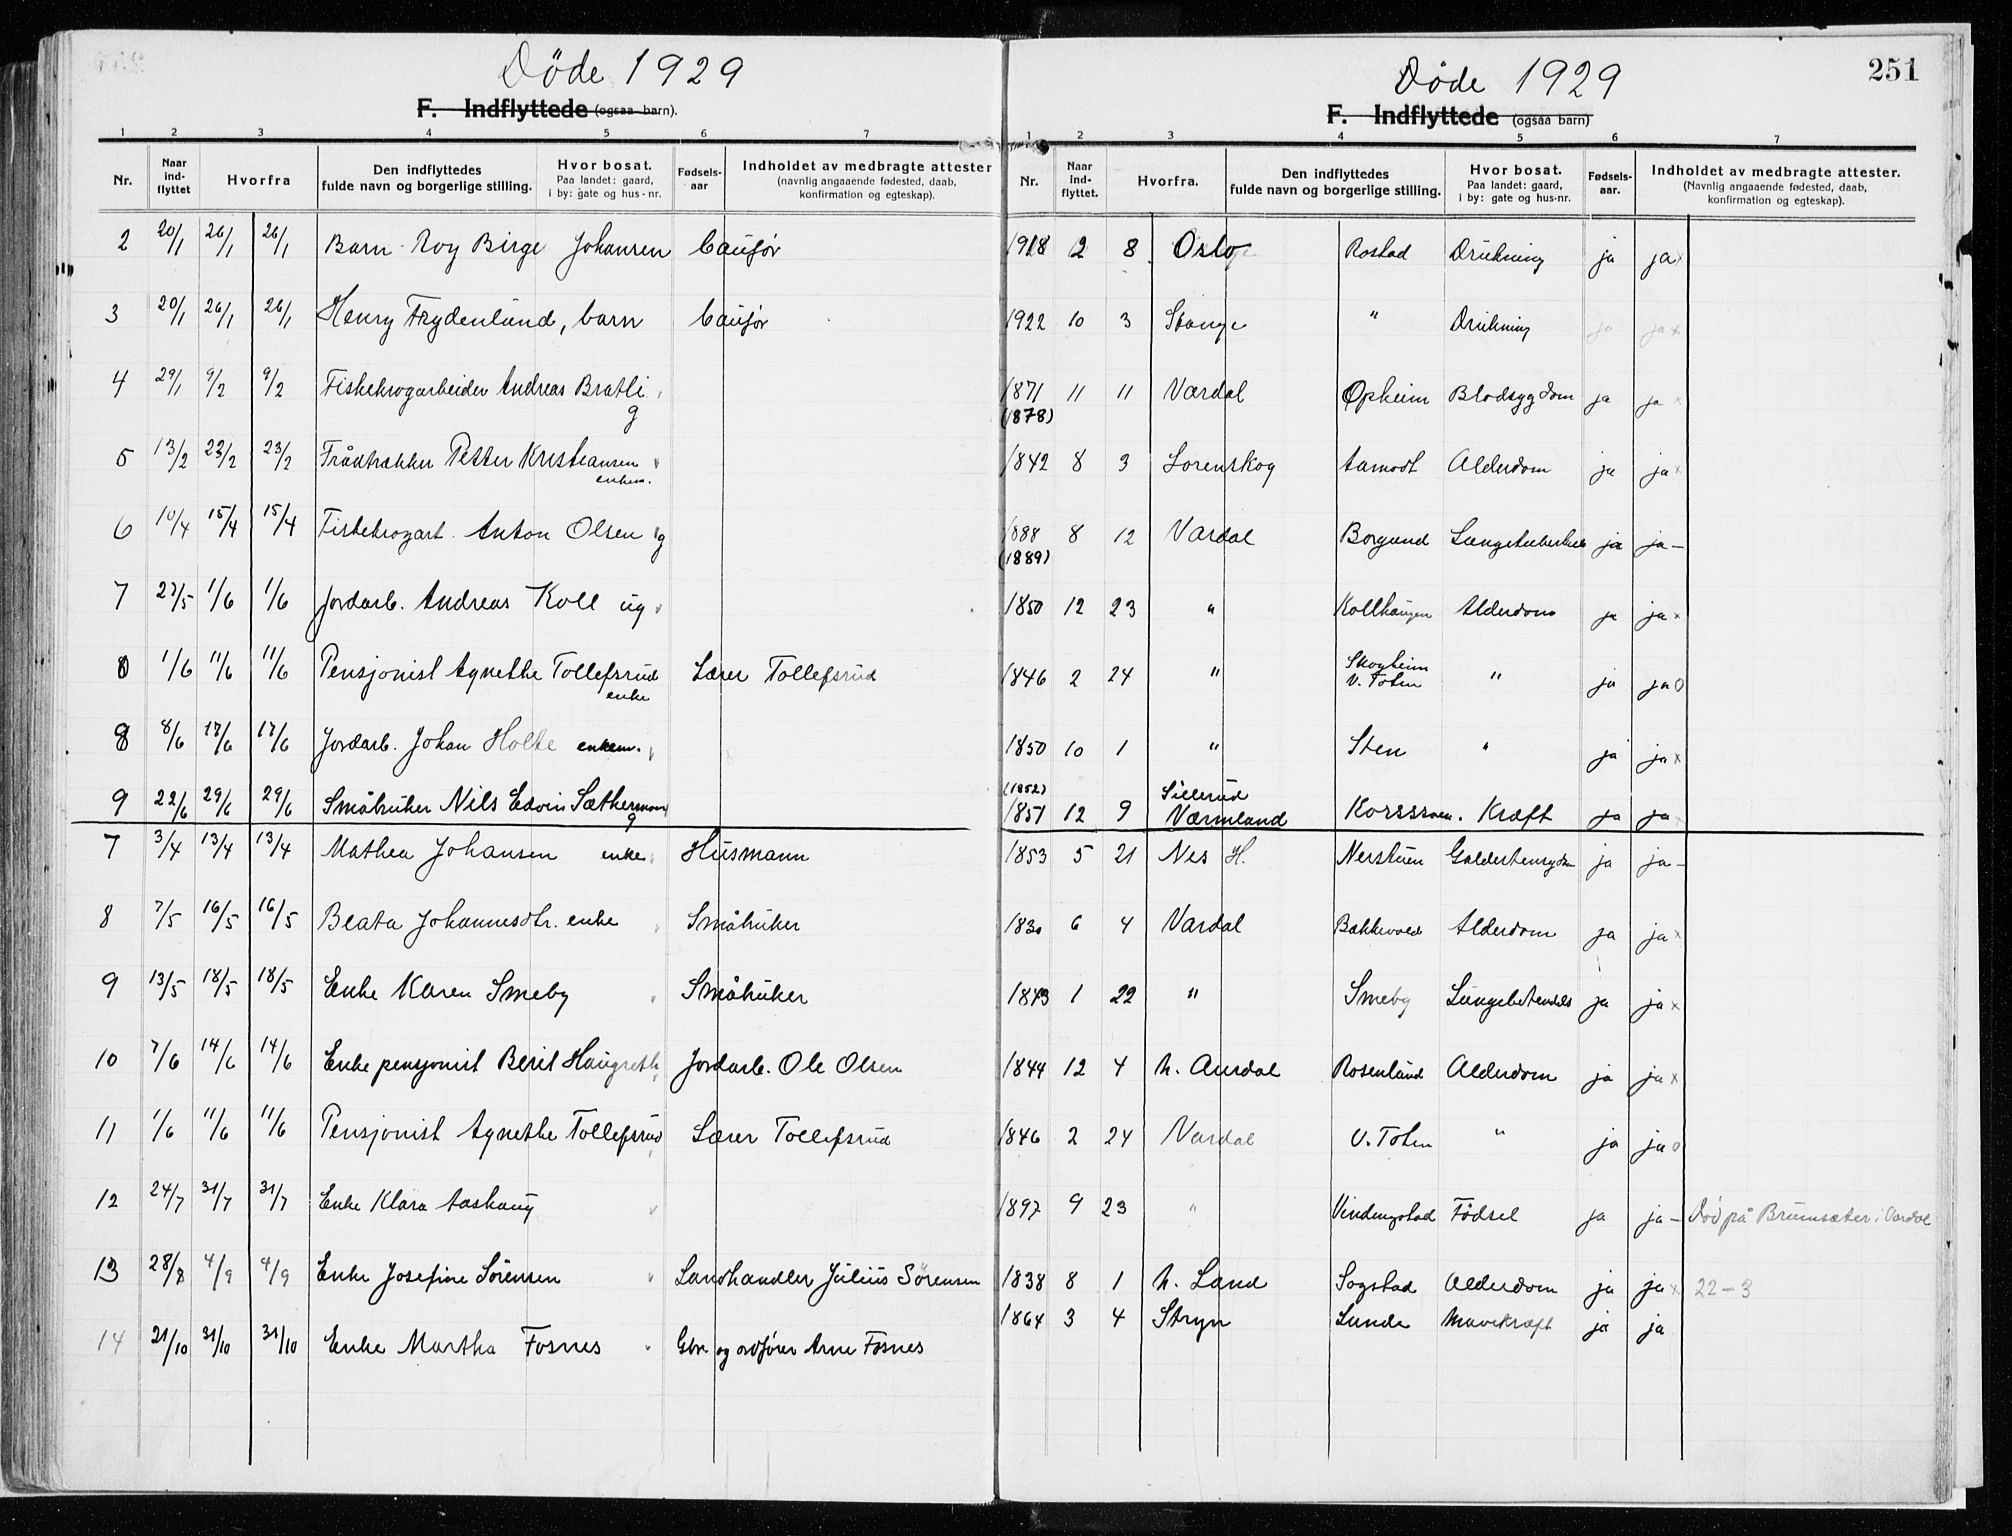 Døde 1929
F. Indflyttede (ogsaa barn).
1 2 3 4 5 6 7
Nr. Naar ind-flyttet Hvorfra Den indflyttedes fulde navn og borgerlige stilling. Hvor bosat. Paa landet: gaard, i by: gate og hus-nr. Fødsels-aar Indholdet av medbragte attester (navnlig angaaende fødested, daab, konfirmation og egteskap).
2 20/1 26/1 26/1 Barn Roy Birge Johansen
3 20/1 26/1 26/1 Henry Frydenlund, barn
4 29/1 9/2 9/2 Fiskekrogarbeider Andreas Bratli g
5 13/2 23/2 23/2 Trådtrækker Petter Kristiansen enkem.
6 10/4 15/4 15/4 Fiskekrogarb. Anton Olsen g
7 27/5 1/6 1/6 Jordarb. Andreas Koll ug
8 1/6 11/6 11/6 Pensjonist Agnethe Tollefsrud enke Lærer Tollefsrud
8 8/6 17/6 17/6 Jordarb. Johan Holte enkem.
9 22/6 29/6 29/6 Småbruker Nils Edvin Sætherman g
7 3/4 13/4 13/4 Mathea Johansen enke Husmann
8 7/5 16/5 16/5 Beata Johannesdtr. enke Småbruker
9 13/5 18/5 18/5 Enke Karen Smeby Småbruker
10 7/6 14/6 14/6 Enke pensjonist Berit Haugreth Jordarb. Ole Olsen
11 1/6 11/6 11/6 Pensjonist Agnethe Tollefsrud Lærer Tollefsrud
12 24/7 31/7 31/7 Enke Klara Aashaug
13 28/8 4/9 4/9 Enke Josefine Sörensen Landhandler Julius Sörensen
14 21/10 31/10 31/10 Enke Martha Fosnes Gbr. og ordfører Arne Fosnes
Døde 1929 251
F. Indflyttede (ogsaa barn)
1 2 3 4 5 6 7
Nr. Naar ind-flyttet. Hvorfra. Den indflyttedes fulde navn og borgerlige stilling. Hvor bosat. Paa landet: gaard, i by: gate og hus-nr. Fødsels-aar. Indholdet av medbragte attester. (Navnlig angaaende fødested, daab, konfirmation og egteskap).
1918 2 8 Oslo Rostad Drukning ja ja x
1922 10 3 Stange " Drukning ja ja x
1871 (1878) 11 11 Vardal Opheim Blodsygdom ja ja x
1842 8 3 Lørenskog Aamodt Alderdom ja ja x
1888 (1889) 8 12 Vardal Borgund ja ja –
1850 12 23 " Kollhaugen Alderdom ja ja x
1846 2 24 " Skogheim V. Toten " ja ja o
1850 10 1 " Sten " ja ja x
(1852) 1851 12 9 Sillerud Værmland Kræft ja ja
1853 5 21 Nes H. Nerstuen ja ja –
1830 6 4 Vardal Bakkevold Alderdom ja ja x
1843 1 22 " Smeby ja ja x
1844 12 4 N. Aurdal Rosenlund Alderdom ja ja x
1846 2 24 Vardal V. Toten " ja ja o
1897 9 23 " Vindingstad Fødsel ja ja – Død på Brumsæter i Vardal
1838 8 1 N. Land Sogstad Alderdom ja ja x 22–3
1864 3 4 Stryn Lunde Mavekræft ja ja